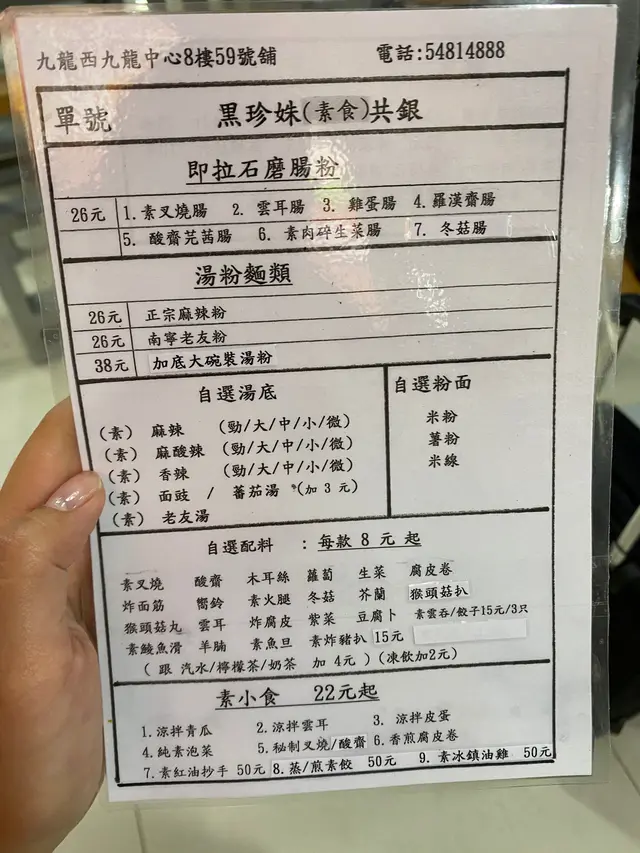 九龍西九龍中心8樓59號舖 電話:54814888
單號 黑珍姝(素食)共銀
即拉石磨腸粉
26元 1.素叉燒腸 2. 雲耳腸 3. 雞蛋腸 4. 羅漢齋腸
5. 酸齋芫茜腸 6. 素肉碎生菜腸 7. 冬菇腸
湯粉麵類
26元 正宗麻辣粉
26元 南寧老友粉
38元 加底大碗裝湯粉
自選湯底
(素) 麻辣 (勁/大/中/小/微)
(素) 麻酸辣 (勁/大/中/小/微)
(素) 香辣 (勁/大/中/小/微)
(素) 面豉 / 蕃茄湯 (加 3 元)
(素) 老友湯
自選粉面
米粉
薯粉
米線
自選配料 : 每款 8 元 起
素叉燒 酸齋 木耳絲 蘿蔔 生菜 腐皮卷
炸面筋 嚮鈴 素火腿 冬菇 芥蘭 猴頭菇扒
猴頭菇丸 雲耳 炸腐皮 紫菜 豆腐卜 素雲吞/餃子15元/3只
素鯪魚滑 羊腩 素魚旦 素炸豬扒 15元
( 跟 汽水/檸檬茶/奶茶 加 4元 ) (凍飲加2元)
素小食 22元起
1.涼拌青瓜 2.涼拌雲耳 3. 涼拌皮蛋
4.純素泡菜 5.秘制叉燒/酸齋 6.香煎腐皮卷
7.素紅油抄手 50元 8.蒸/煎素餃 50元 9. 素冰鎮油雞 50元